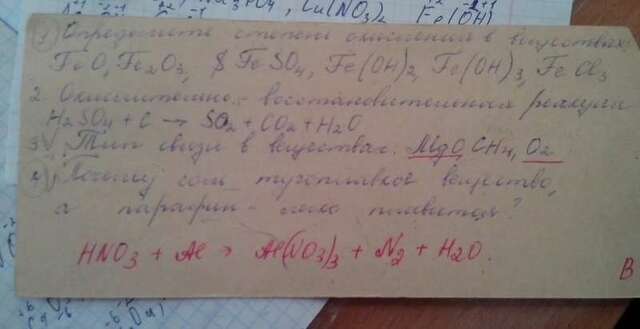 Na3PO4, Cu(NO3)2 Fe(OH)
1) Определите степень окисления в веществах:
FeO, Fe2O3, S FeSO4, Fe(OH)2, Fe(OH)3, FeCl3
2. Окислительно-восстановительная реакция
H2SO4 + C → SO2 + CO2 + H2O
3. Тип связи в веществах: MgO CH4, O2
4. Почему соль тугоплавкое вещество,
а парафин легко плавится?
HNO3 + Al → Al(NO3)3 + N2 + H2O.
В